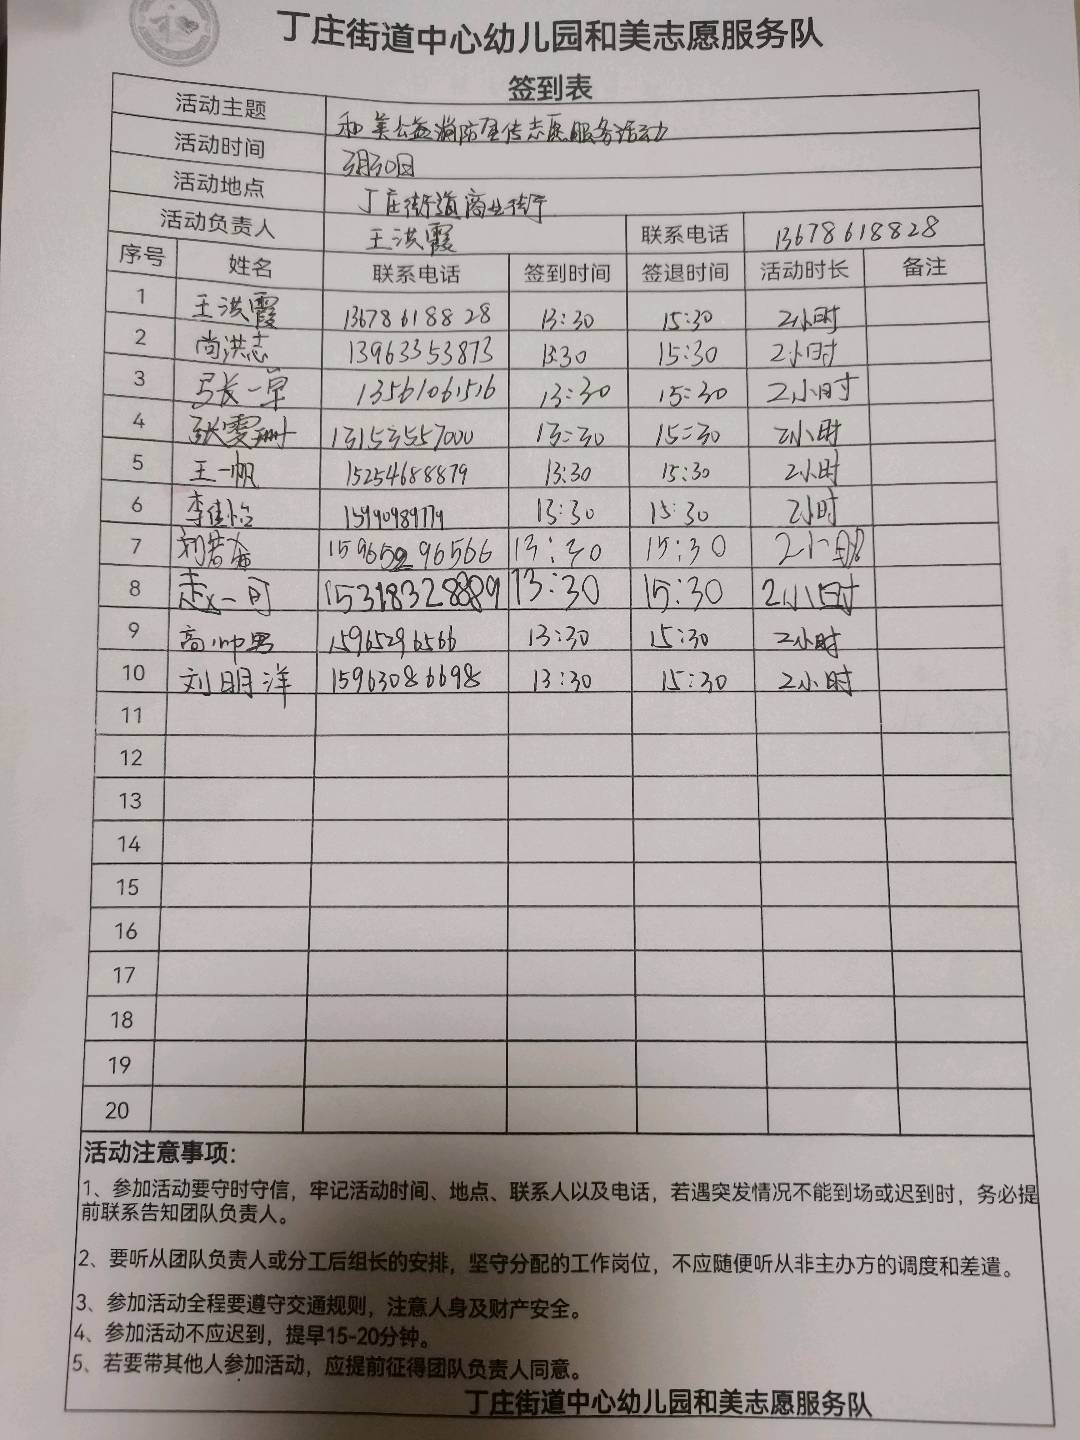 丁庄街道中心幼儿园和美志愿服务队
签到表
活动主题 和美公益消防宣传志愿服务活动
活动时间 3月30日
活动地点 丁庄街道商业街
活动负责人 王洪霞 联系电话 13678618828
序号 姓名 联系电话 签到时间 签退时间 活动时长 备注
1 王洪霞 13678618828 13:30 15:30 2小时
2 尚洪志 13963353873 13:30 15:30 2小时
3 张一卓 13561061516 13:30 15:30 2小时
4 张雯珊 13153557000 13:30 15:30 2小时
5 王一帆 15254688879 13:30 15:30 2小时
6 李佳怡 13:30 15:30 2小时
7 15965296566 13:30 15:30 2小时
8 赵一可 15318328889 13:30 15:30 2小时
9 高帅男 15965296566 13:30 15:30 2小时
10 刘明洋 15963086698 13:30 15:30 2小时
11
12
13
14
15
16
17
18
19
20
活动注意事项：
1、参加活动要守时守信，牢记活动时间、地点、联系人以及电话，若遇突发情况不能到场或迟到时，务必提
前联系告知团队负责人。
2、要听从团队负责人或分工后组长的安排，坚守分配的工作岗位，不应随便听从非主办方的调度和差遣。
3、参加活动全程要遵守交通规则，注意人身及财产安全。
4、参加活动不应迟到，提早15-20分钟。
5、若要带其他人参加活动，应提前征得团队负责人同意。
丁庄街道中心幼儿园和美志愿服务队